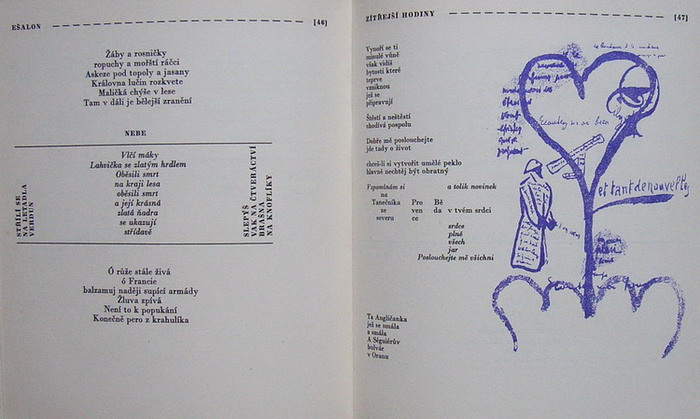 EŠALON [46]
Žáby a rosničky
ropuchy a mořští ráčci
Askeze pod topoly a jasany
Královna lučin rozkvete
Maličká chýše v lese
Tam v dáli je bělejší zranění
NEBE
STŘÍLÍ SE
NA LETADLA
VERDUN
Vlčí máky
Lahvička se zlatým hrdlem
Oběsili smrt
na kraji lesa
oběsili smrt
a její krásná
zlatá ňadra
se ukazují
střídavě
SLEPÝŠ
VAK NA ČTVERÁCTVÍ
BRAŠNA
NA KNOFLÍKY
Ó růže stále živá
ó Francie
balzamuj naději supící armády
Žluva zpívá
Není to k popukání
Konečně pero z krahulíka
ZÍTŘEJŠÍ HODINY [47]
Vynoří se ti
minulé vůně
však vidíš
bytosti které
teprve
vzniknou
jež se
připravují
Štěstí a neštěstí
chodívá pospolu
Dobře mě poslouchejte
jde tady o život
chceš-li si vytvořit umělé peklo
hlavně nechtěj být obratný
Vzpomínám si a tolik novinek
na
Tanečníka Pro Bě
ze ven da v tvém srdci
severu ce
srdce
plné
všech
jar
Poslouchejte mě všichni
et tant de nouvelles
Ta Angličanka
jež se smála
a smála
A Séguiérův
bulvár
v Oranu